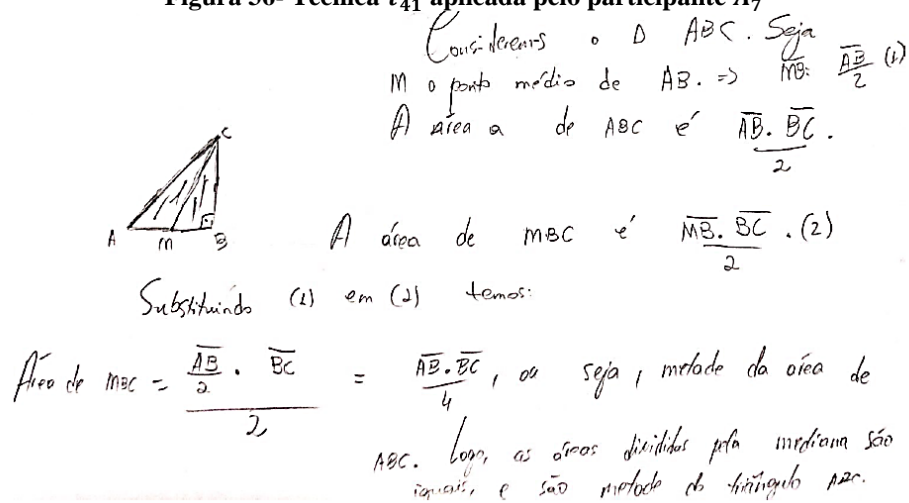 Figura 36- Técnica t₄₁ aplicada pelo participante A₇
Consideremos o Δ ABC. Seja
M o ponto médio de AB. => M̅B̅: A̅B̅/2 (1)
A área a de ABC é A̅B̅ . B̅C̅ / 2 .
C
A
M
B
A área de MBC é M̅B̅ . B̅C̅ / 2 . (2)
Substituindo (1) em (2) temos:
Área de MBC = (A̅B̅/2 . B̅C̅) / 2 = A̅B̅ . B̅C̅ / 4 , ou seja, metade da área de
ABC. Logo, as áreas divididas pela mediana são
iguais, e são metade do triângulo ABC.